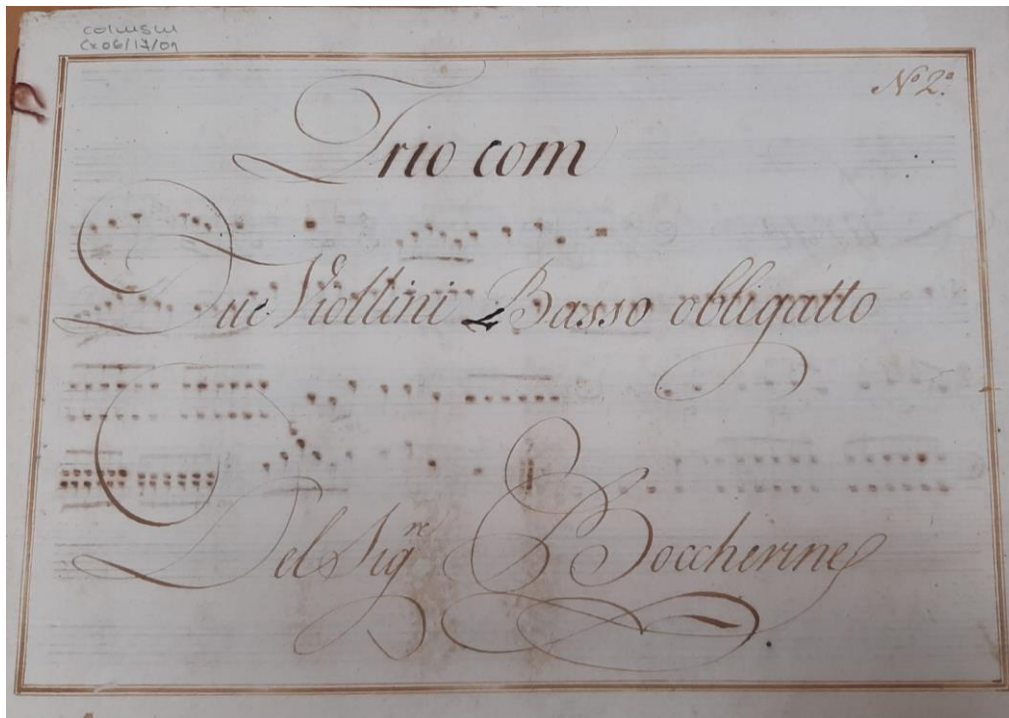 colusui
Cx06/17/01
Nº 2º
Trio com
Due Viollini e Basso obbligatto
Del Sigre Boccherine